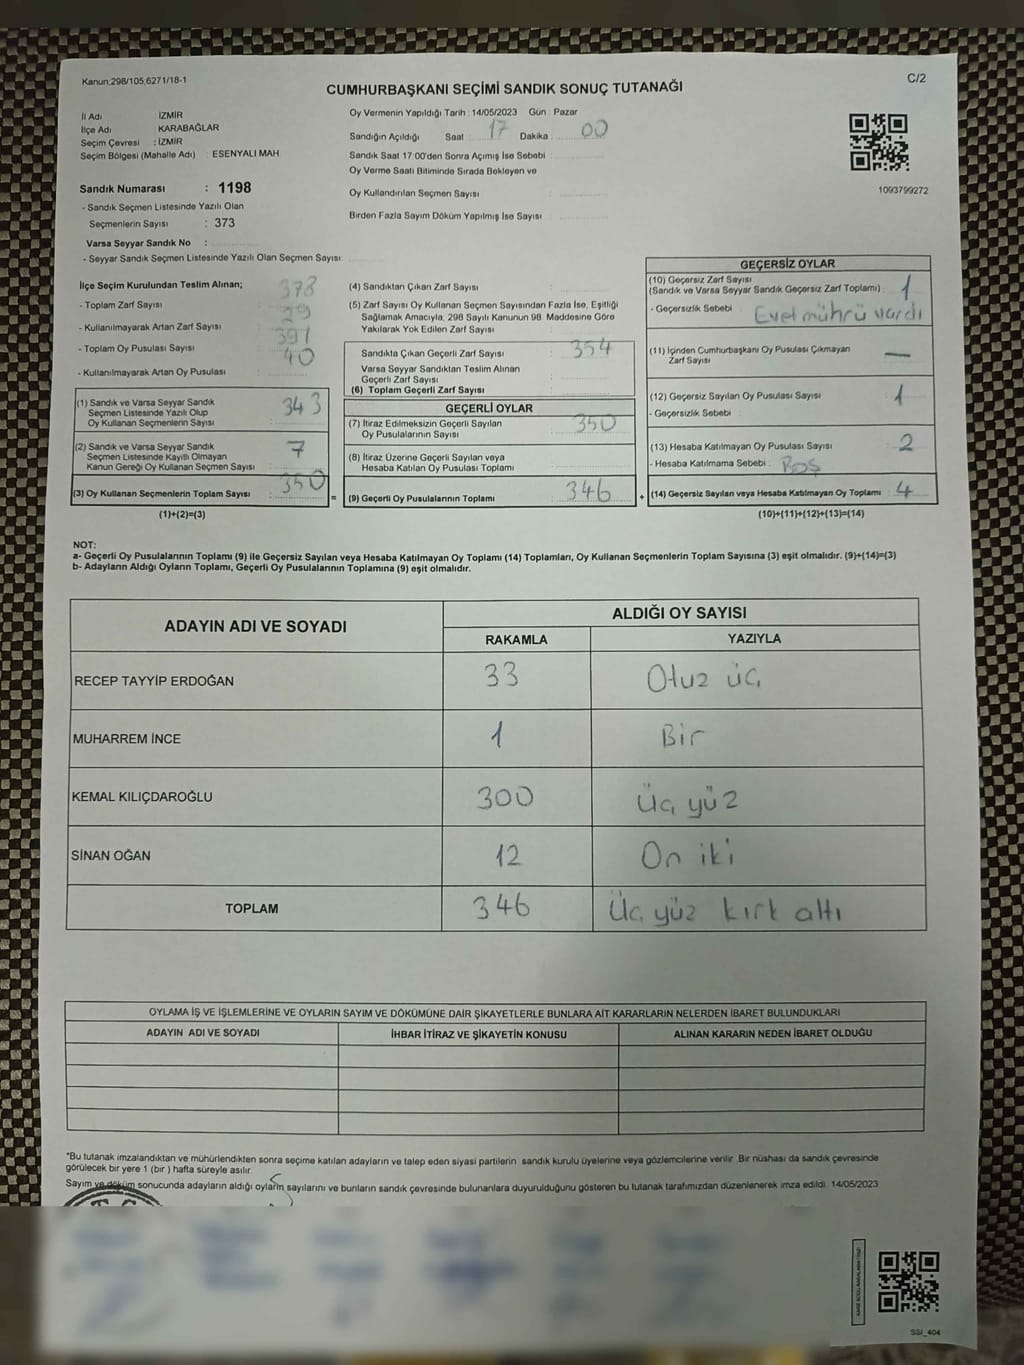 Kanun:298/105,6271/18-1
C/2
CUMHURBAŞKANI SEÇİMİ SANDIK SONUÇ TUTANAĞI
İl Adı İZMİR
İlçe Adı KARABAĞLAR
Seçim Çevresi : İZMİR
Seçim Bölgesi (Mahalle Adı) : ESENYALI MAH
Sandık Numarası : 1198
- Sandık Seçmen Listesinde Yazılı Olan
Seçmenlerin Sayısı : 373
Varsa Seyyar Sandık No :
- Seyyar Sandık Seçmen Listesinde Yazılı Olan Seçmen Sayısı:
Oy Vermenin Yapıldığı Tarih : 14/05/2023 Gün : Pazar
Sandığın Açıldığı Saat : 17 Dakika : 00
Sandık Saat 17:00'den Sonra Açımış İse Sebebi :
Oy Verme Saati Bitiminde Sırada Bekleyen ve
Oy Kullandırılan Seçmen Sayısı :
Birden Fazla Sayım Döküm Yapılmış İse Sayısı :
1093799272
İlçe Seçim Kurulundan Teslim Alınan;
- Toplam Zarf Sayısı : 378
- Kullanılmayarak Artan Zarf Sayısı : 29
- Toplam Oy Pusulası Sayısı : 391
- Kullanılmayarak Artan Oy Pusulası : 40
(1) Sandık ve Varsa Seyyar Sandık
Seçmen Listesinde Yazılı Olup
Oy Kullanan Seçmenlerin Sayısı : 343
(2) Sandık ve Varsa Seyyar Sandık
Seçmen Listesinde Kayıtlı Olmayan
Kanun Gereği Oy Kullanan Seçmen Sayısı : 7
(3) Oy Kullanan Seçmenlerin Toplam Sayısı : 350
(1)+(2)=(3)
(4) Sandıktan Çıkan Zarf Sayısı :
(5) Zarf Sayısı Oy Kullanan Seçmen Sayısından Fazla İse, Eşitliği
Sağlamak Amacıyla, 298 Sayılı Kanunun 98. Maddesine Göre
Yakılarak Yok Edilen Zarf Sayısı :
Sandıkta Çıkan Geçerli Zarf Sayısı : 354
Varsa Seyyar Sandıktan Teslim Alınan
Geçerli Zarf Sayısı :
(6) Toplam Geçerli Zarf Sayısı :
GEÇERLİ OYLAR
(7) İtiraz Edilmeksizin Geçerli Sayılan : 350
Oy Pusulalarının Sayısı
(8) İtiraz Üzerine Geçerli Sayılan veya
Hesaba Katılan Oy Pusulası Toplamı :
= (9) Geçerli Oy Pusulalarının Toplamı : 346 +
GEÇERSİZ OYLAR
(10) Geçersiz Zarf Sayısı
(Sandık ve Varsa Seyyar Sandık Geçersiz Zarf Toplamı) : 1
- Geçersizlik Sebebi : Evet mührü vardı
(11) İçinden Cumhurbaşkanı Oy Pusulası Çıkmayan
Zarf Sayısı : —
(12) Geçersiz Sayılan Oy Pusulası Sayısı : 1
- Geçersizlik Sebebi :
(13) Hesaba Katılmayan Oy Pusulası Sayısı : 2
- Hesaba Katılmama Sebebi : Boş
(14) Geçersiz Sayılan veya Hesaba Katılmayan Oy Toplamı : 4
(10)+(11)+(12)+(13)=(14)
NOT:
a- Geçerli Oy Pusulalarının Toplamı (9) ile Geçersiz Sayılan veya Hesaba Katılmayan Oy Toplamı (14) Toplamları, Oy Kullanan Seçmenlerin Toplam Sayısına (3) eşit olmalıdır. (9)+(14)=(3)
b- Adayların Aldığı Oyların Toplamı, Geçerli Oy Pusulalarının Toplamına (9) eşit olmalıdır.
ADAYIN ADI VE SOYADI
ALDIĞI OY SAYISI
RAKAMLA YAZIYLA
RECEP TAYYİP ERDOĞAN 33 Otuz üç
MUHARREM İNCE 1 Bir
KEMAL KILIÇDAROĞLU 300 Üç yüz
SİNAN OĞAN 12 On iki
TOPLAM 346 Üç yüz kırk altı
OYLAMA İŞ VE İŞLEMLERİNE VE OYLARIN SAYIM VE DÖKÜMÜNE DAİR ŞİKAYETLERLE BUNLARA AİT KARARLARIN NELERDEN İBARET BULUNDUKLARI
ADAYIN ADI VE SOYADI İHBAR İTİRAZ VE ŞİKAYETİN KONUSU ALINAN KARARIN NEDEN İBARET OLDUĞU
*Bu tutanak imzalandıktan ve mühürlendikten sonra seçime katılan adayların ve talep eden siyasi partilerin sandık kurulu üyelerine veya gözlemcilerine verilir. Bir nüshası da sandık çevresinde
görülecek bir yere 1 (bir ) hafta süreyle asılır.
Sayım ve döküm sonucunda adayların aldığı oyların sayılarını ve bunların sandık çevresinde bulunanlara duyurulduğunu gösteren bu tutanak tarafımızdan düzenlenerek imza edildi. 14/05/2023
T.C.
SSI_404